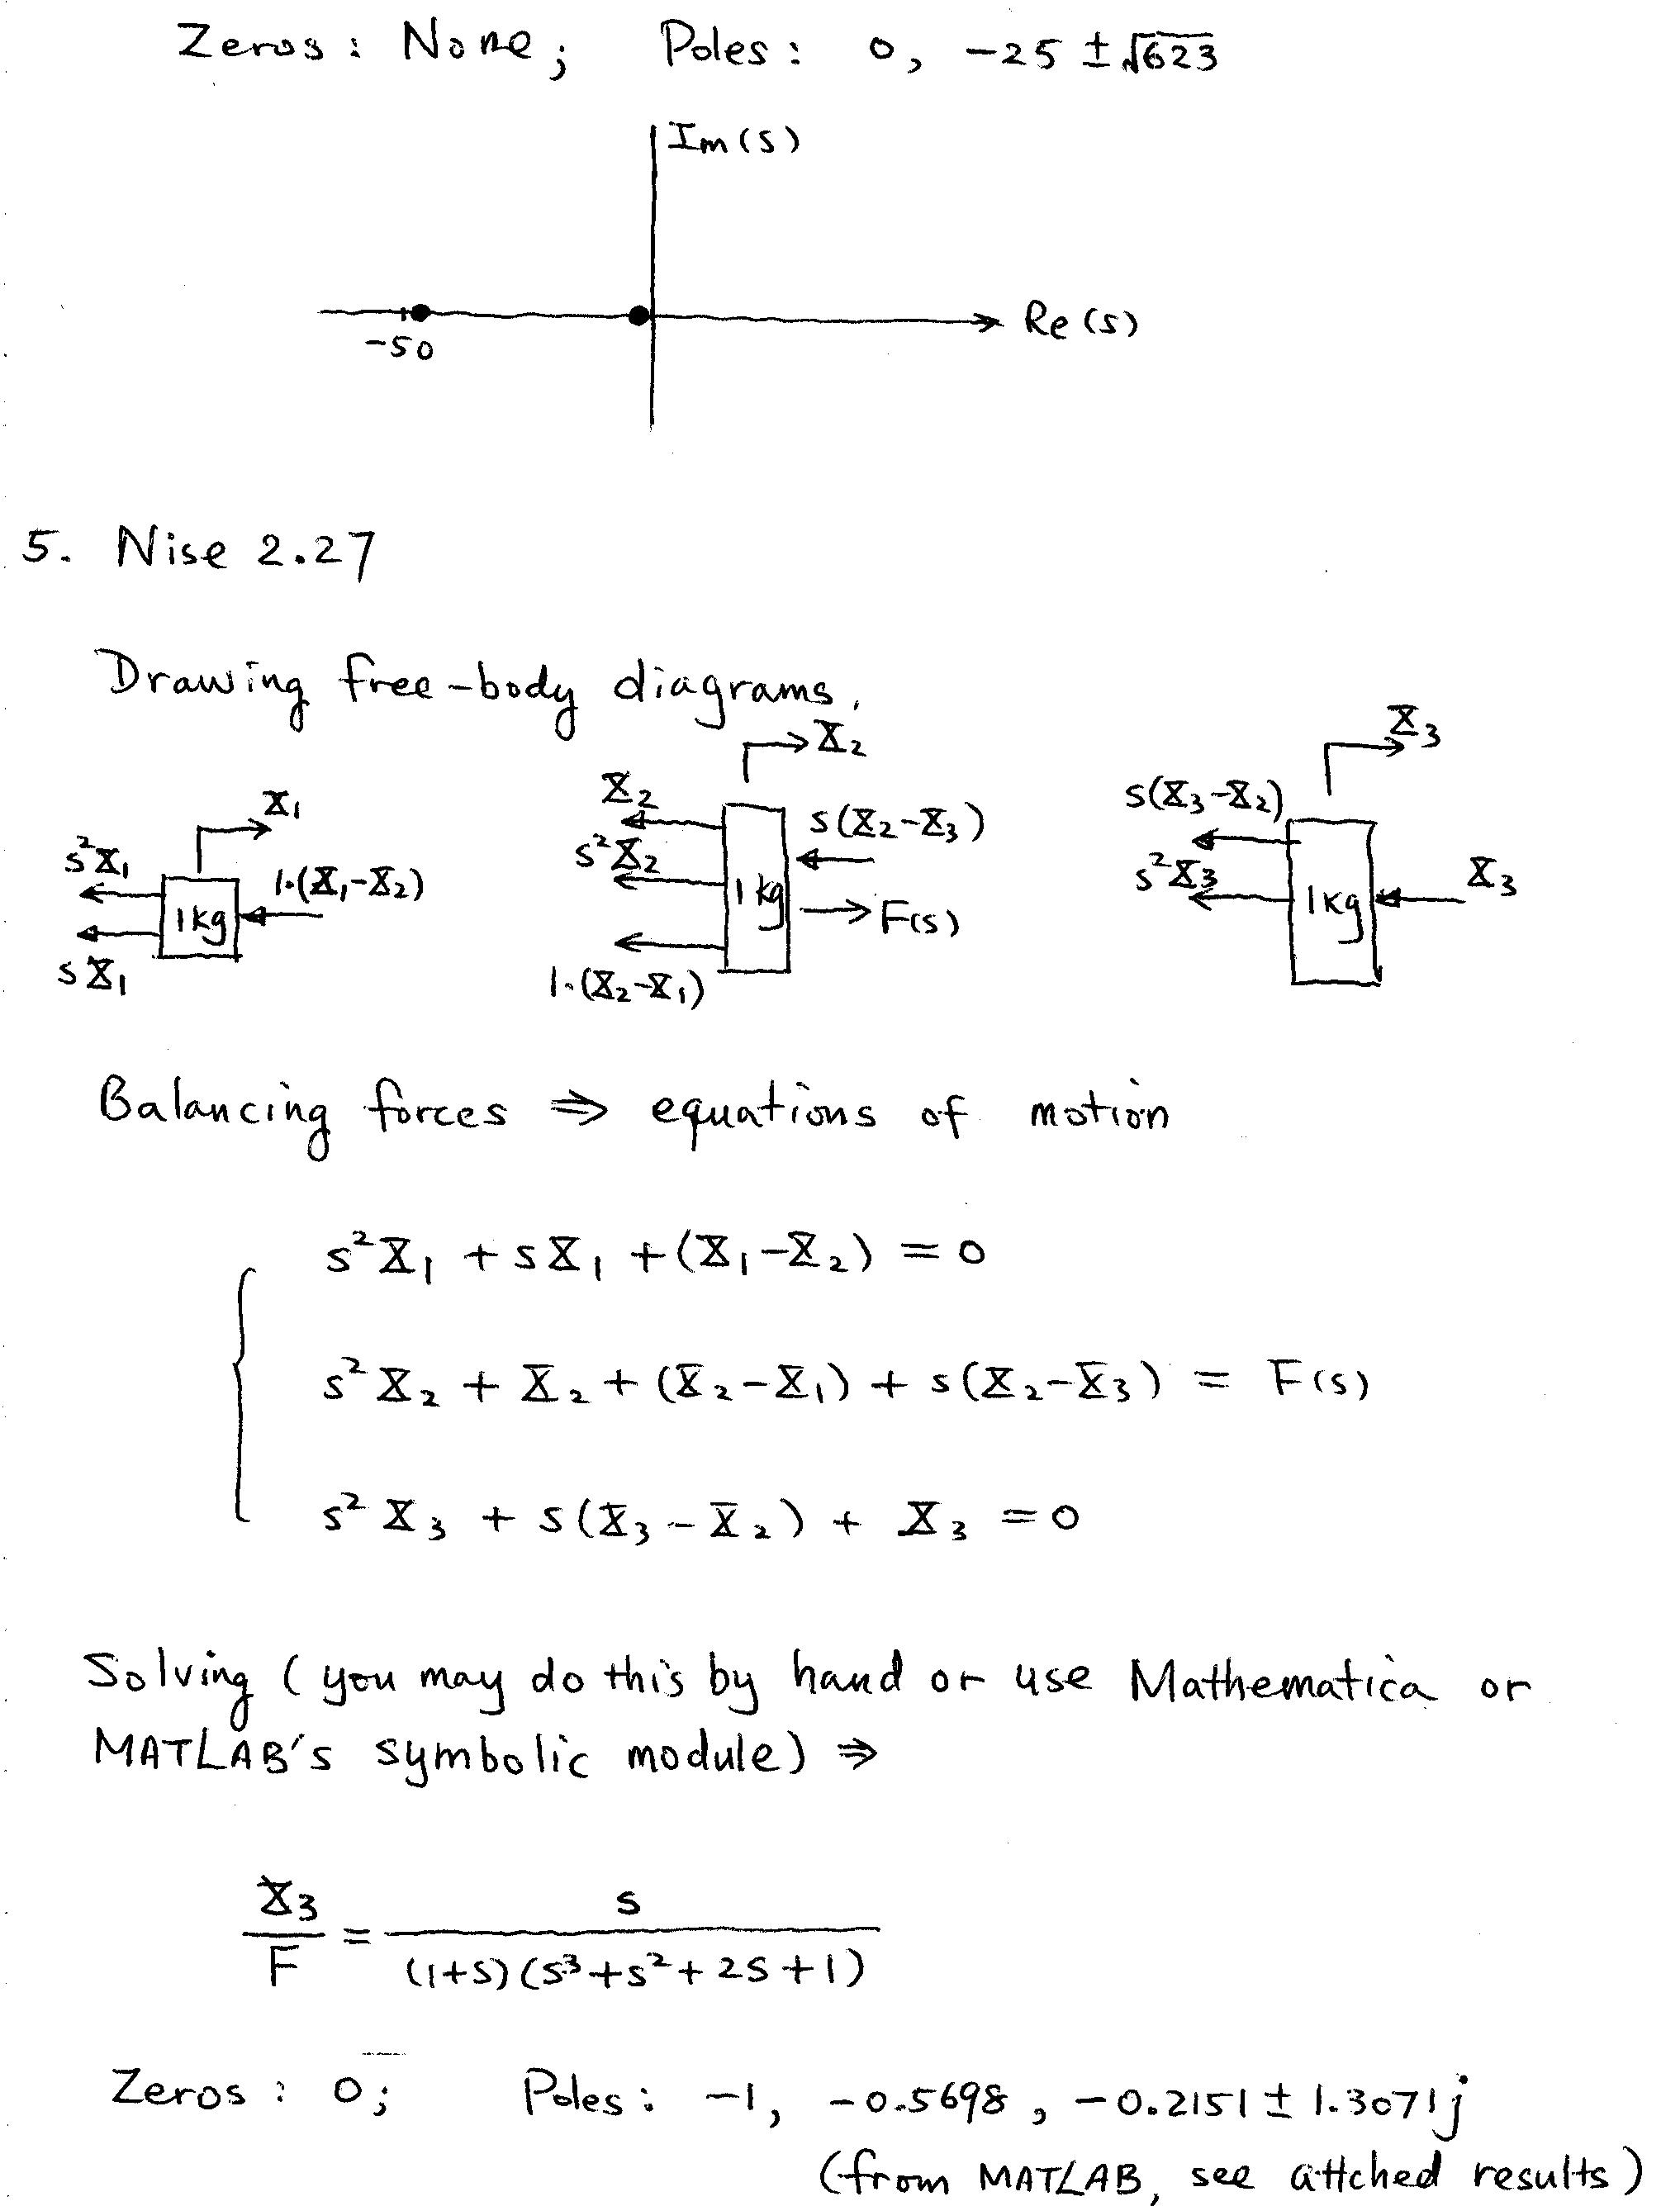 Zeros : None ; Poles : 0, -25 ± √623
Im(s)
Re(s)
-50
5. Nise 2.27
Drawing free-body diagrams.
X₁
s²X₁
1·(X₁-X₂)
1kg
sX₁
X₂
X₂
s(X₂-X₃)
s²X₂
1kg
F(s)
1·(X₂-X₁)
X₃
s(X₃-X₂)
s²X₃
X₃
1kg
Balancing forces ⇒ equations of motion
s²X₁ + sX₁ + (X₁-X₂) = 0
s²X₂ + X₂ + (X₂-X₁) + s(X₂-X₃) = F(s)
s²X₃ + s(X₃-X₂) + X₃ = 0
Solving (you may do this by hand or use Mathematica or
MATLAB's symbolic module) ⇒
X₃/F = s/((1+s)(s³+s²+2s+1))
Zeros : 0; Poles : -1, -0.5698, -0.2151 ± 1.3071j
(from MATLAB, see attched results)